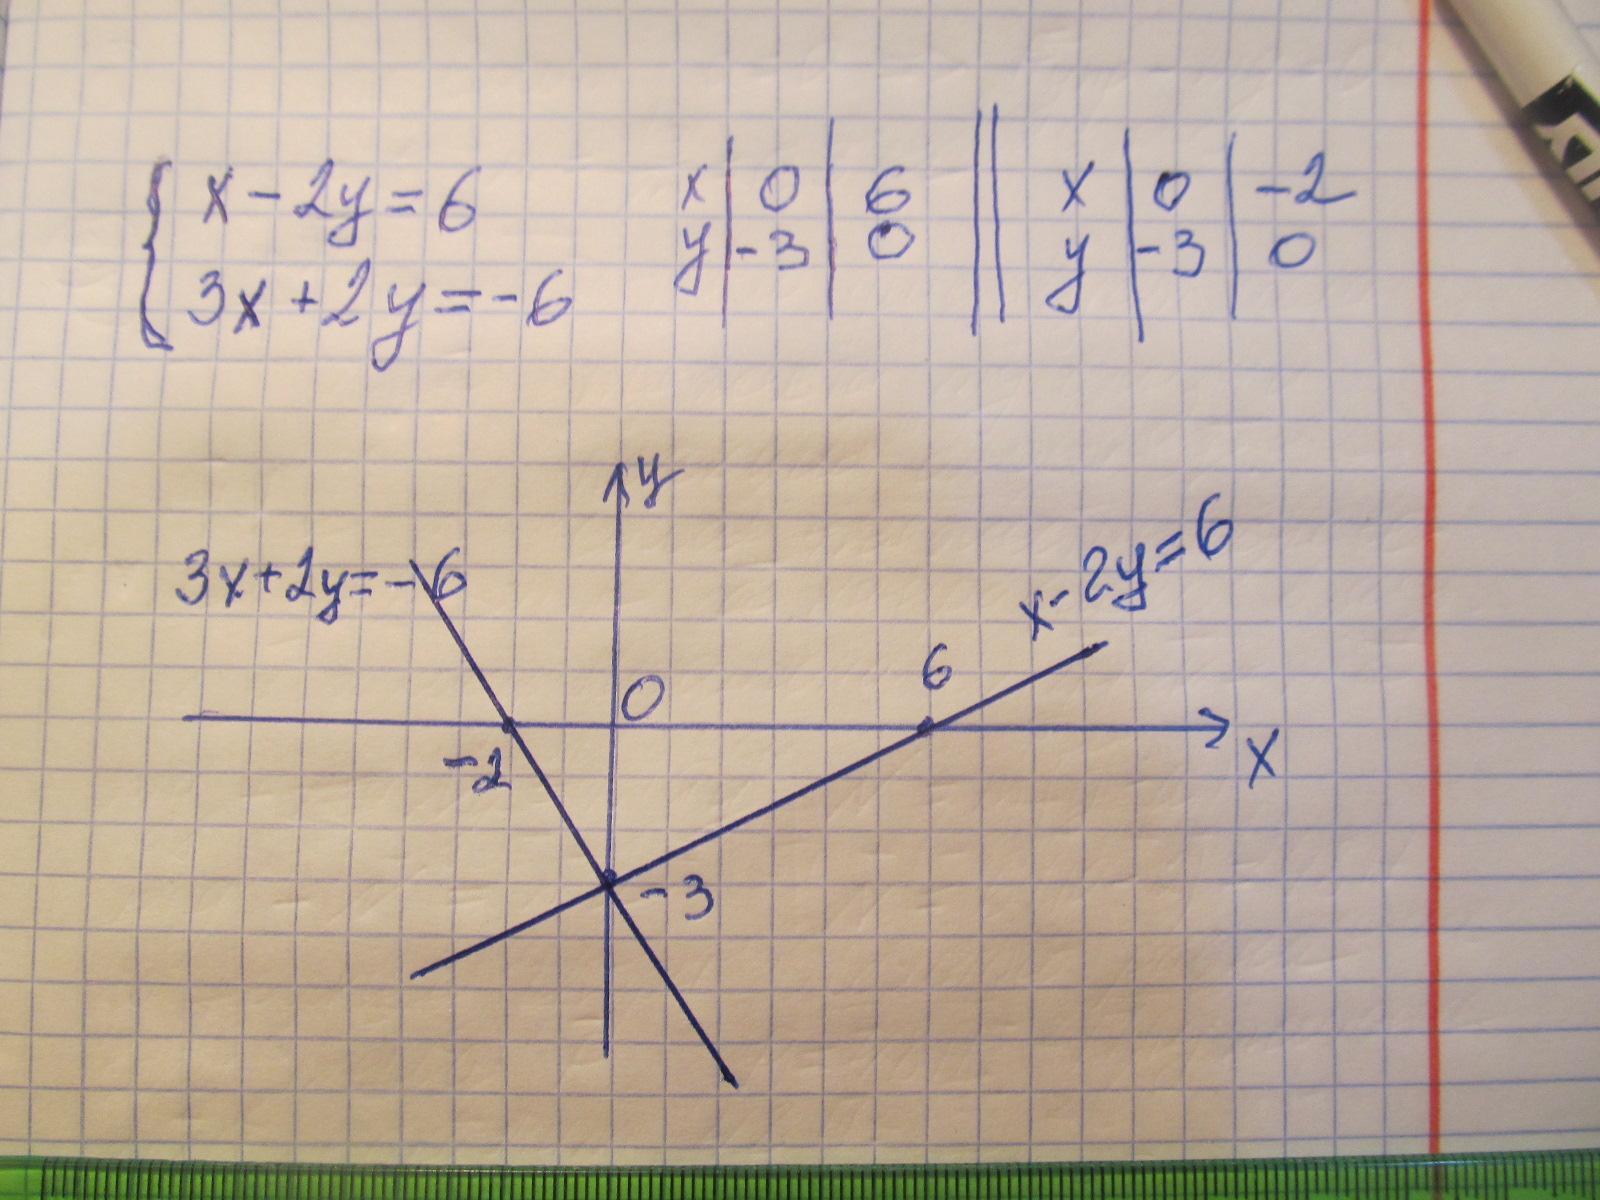 x - 2y = 6
3x + 2y = -6
x | 0 | 6 || x | 0 | -2
y | -3 | 0 || y | -3 | 0
y
3x+2y=-6
x-2y=6
6
0
-2
x
-3